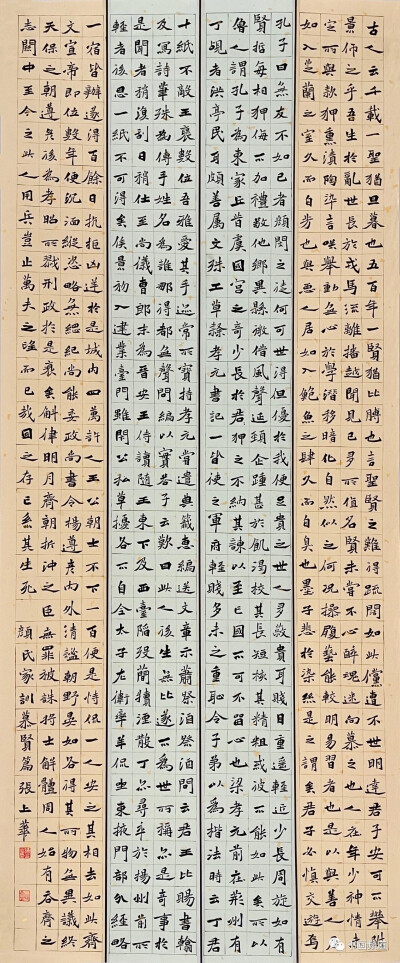 古人云千載一聖猶旦暮也五百年一賢猶比膊也言聖賢之難得疏闊如此儻遭不世明達君子安可不攀附
景仰之乎吾生於亂世長於戎馬流離播越聞見已多所值名賢未嘗不心醉魂迷向慕之也人在年少神情未
定所與款狎熏漬陶染言笑舉動無心於學潛移暗化自然似之何況操履藝能較明易習者也是以與善人居
如入芝蘭之室久而自芳也與惡人居如入鮑魚之肆久而自臭也墨子悲於染絲是之謂矣君子必慎交遊焉
孔子曰無友不如己者顏閔之徒何可世得但優於我便足貴之世人多蔽貴耳賤目重遙輕近少長周旋如有
賢哲每相狎侮不加禮敬他鄉異縣微借風聲延頸企踵甚於飢渴校其長短核其精粗或彼不能如此矣所以
魯人謂孔子為東家丘昔虞國宮之奇少長於君狎之不納其諫以至亡國不可不留心也梁孝元前在荊州有
丁覘者洪亭民耳頗善屬文殊工草隸孝元書記一皆使之軍府輕賤多未之重恥令子弟以為楷法時云丁君
十紙不敵王褒數位吾雅愛其手迹常所寶持孝元嘗遣典籤惠編送文章示蕭祭酒祭酒問云君王比賜書翰
及寫詩筆殊為佳手姓名為誰那得都無聲問編以實答子雲歎曰此人後生無比遂不為世所稱亦是奇事於
是聞者稍復刮目稍仕至尚儀曹郎末為晉安王侍讀隨王東下及西臺陷歿簡牘湮散丁亦尋卒於揚州前所
輕者後思一紙不可得矣侯景初入建業臺門雖閉公私草擾各不自全太子左衛率羊侃坐東掖門部分經略
一宿皆辦遂得百餘日抗拒凶逆於是城內四萬許人王公朝士不下一百便是恃侃一人安之其相去如此齊
文宣帝即位數年便沉湎縱恣略無綱紀尚能委政尚書令楊遵彥內外清謐朝野晏如各得其所物無異議終
天保之朝遵彥後為孝昭所戮刑政於是衰矣斛律明月齊朝折衝之臣無罪被誅將士解體周人始有吞齊之
志關中至今之此人用兵豈止萬夫之望而已哉國之存亡係其生死 顏氏家訓慕賢篇張上華